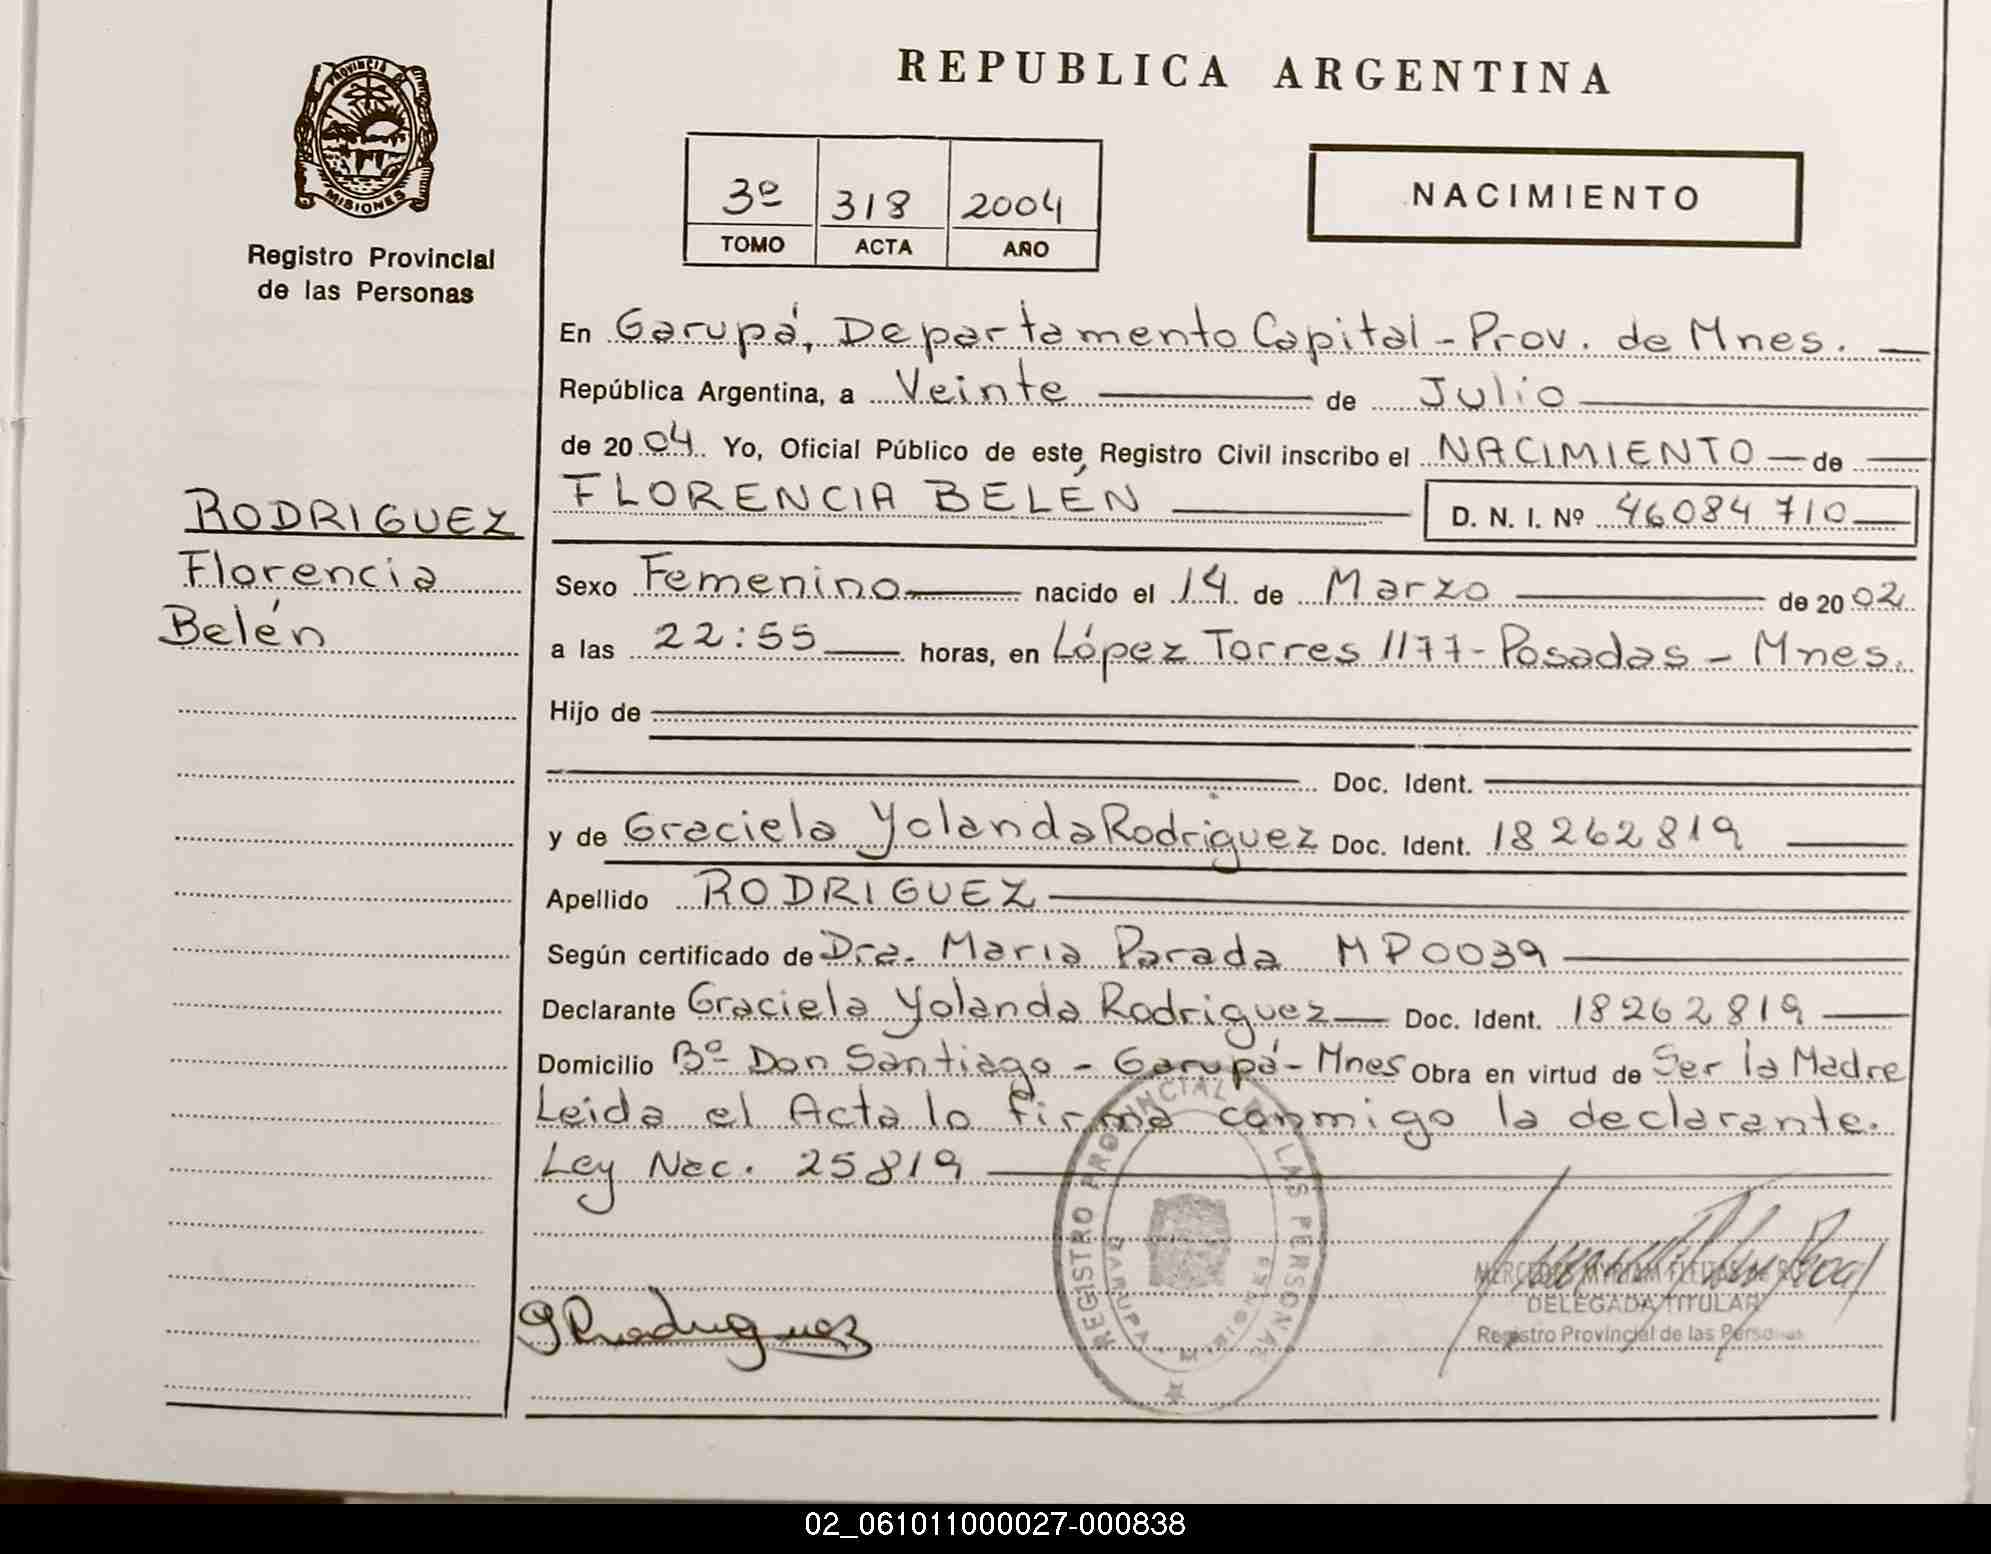 PROVINCIA
MISIONES
Registro Provincial
de las Personas
REPUBLICA ARGENTINA
3º 318 2004
TOMO ACTA AÑO
NACIMIENTO
RODRIGUEZ
Florencia
Belén
En Garupá, Departamento Capital - Prov. de Mnes.
República Argentina, a Veinte de Julio
de 2004 Yo, Oficial Público de este Registro Civil inscribo el NACIMIENTO de
FLORENCIA BELÉN D. N. I. Nº 46084710
Sexo Femenino nacido el 14 de Marzo de 2002
a las 22:55 horas, en López Torres 1177 - Posadas - Mnes.
Hijo de
Doc. Ident.
y de Graciela Yolanda Rodriguez Doc. Ident. 18262819
Apellido RODRIGUEZ
Según certificado de Dra. Maria Parada MP0039
Declarante Graciela Yolanda Rodriguez Doc. Ident. 18262819
Domicilio Bº Don Santiago - Garupá - Mnes Obra en virtud de Ser la Madre
Leida el Acta lo firma conmigo la declarante.
Ley Nac. 25819
GRodriguez
REGISTRO PROVINCIAL DE LAS PERSONAS
GARUPA - MISIONES
MERCEDES MYRIAM FLEITAS DE
DELEGADA TITULAR
Registro Provincial de las Personas
02_061011000027-000838